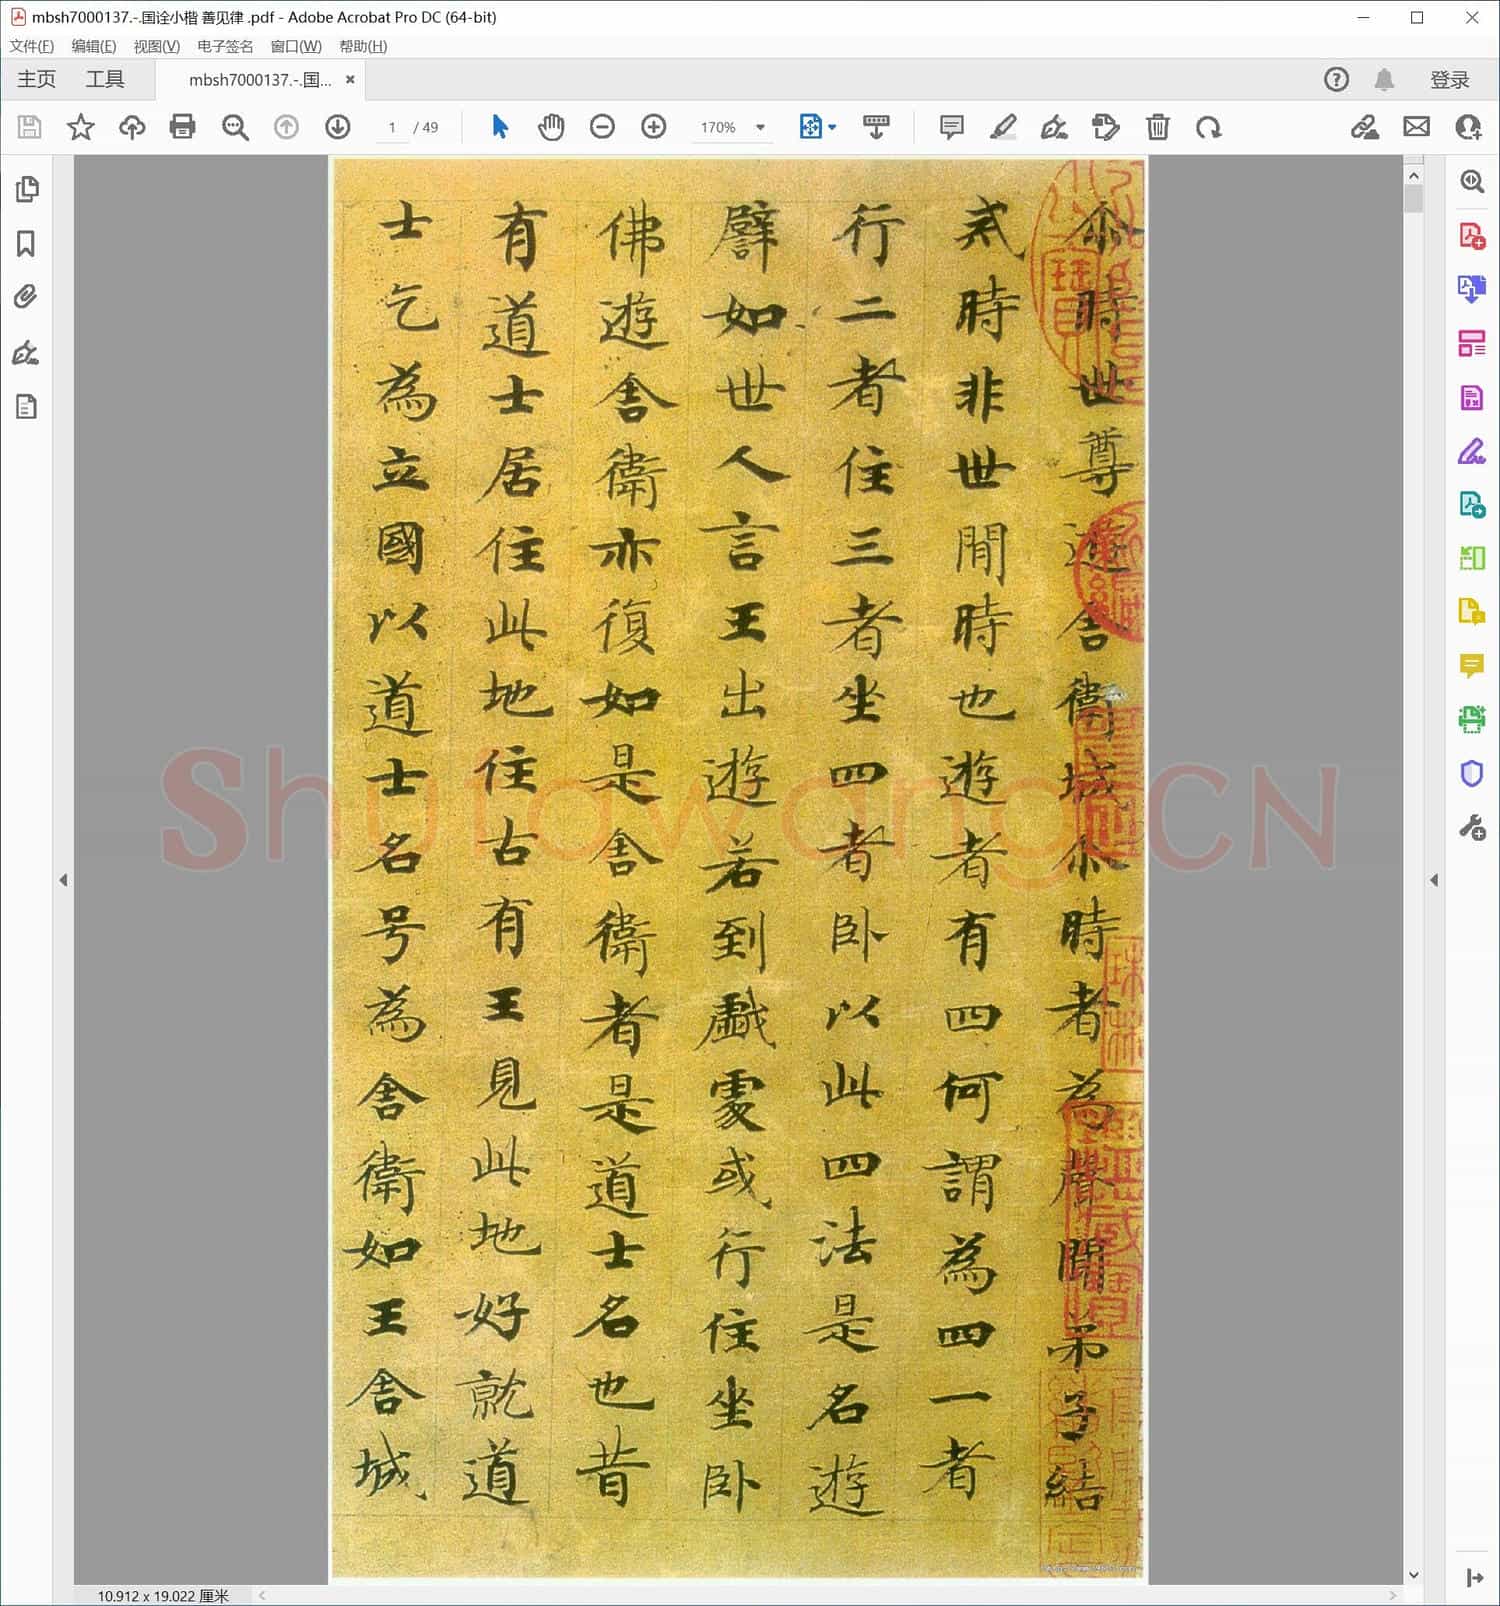 mbsh7000137.-.国诠小楷 善见律 .pdf - Adobe Acrobat Pro DC (64-bit)
文件(F) 编辑(E) 视图(V) 电子签名 窗口(W) 帮助(H)
主页 工具 mbsh7000137.-.国... × 登录
1 / 49 170%
尒時世尊遊舍衛城尒時者為聲聞弟子結
戒時非世間時也遊者有四何謂為四一者
行二者住三者坐四者卧以此四法是名遊
譬如世人言王出遊若到戲處或行住坐卧
佛遊舍衛亦復如是舍衛者是道士名也昔
有道士居住此地住古有王見此地好就道
士乞為立國以道士名号為舍衛如王舍城
Shufawang.CN
10.912 x 19.022 厘米